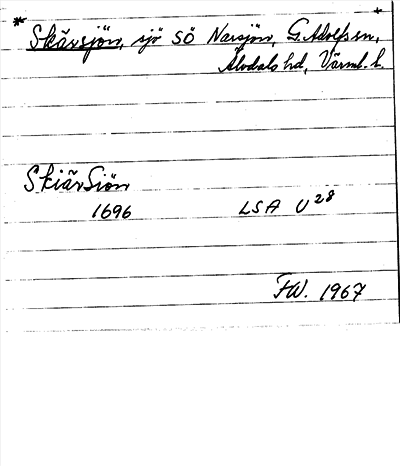 * Skärsjön, sjö SÖ Narsjön, G. Adolfs sn, *
Älvdals hd, Värml. l.
Skiär Siön
1696 LSA U 28
FW. 1967